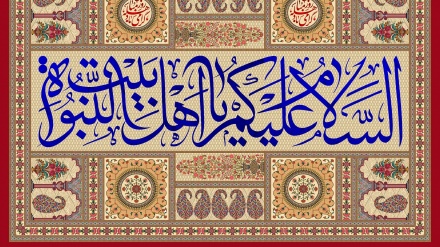 السَّلامُ عَلَیْکُم یا اَهْلَ بَیْتِ النُّبُوَّةِ